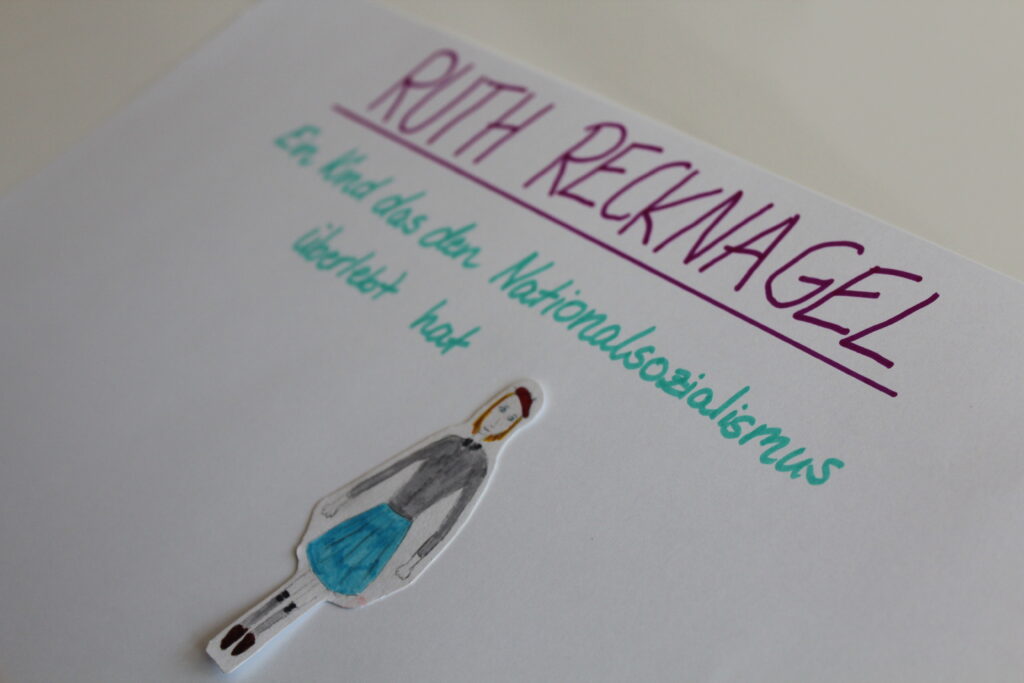 RUTH RECKNAGEL
Ein Kind das den Nationalsozialismus
überlebt hat